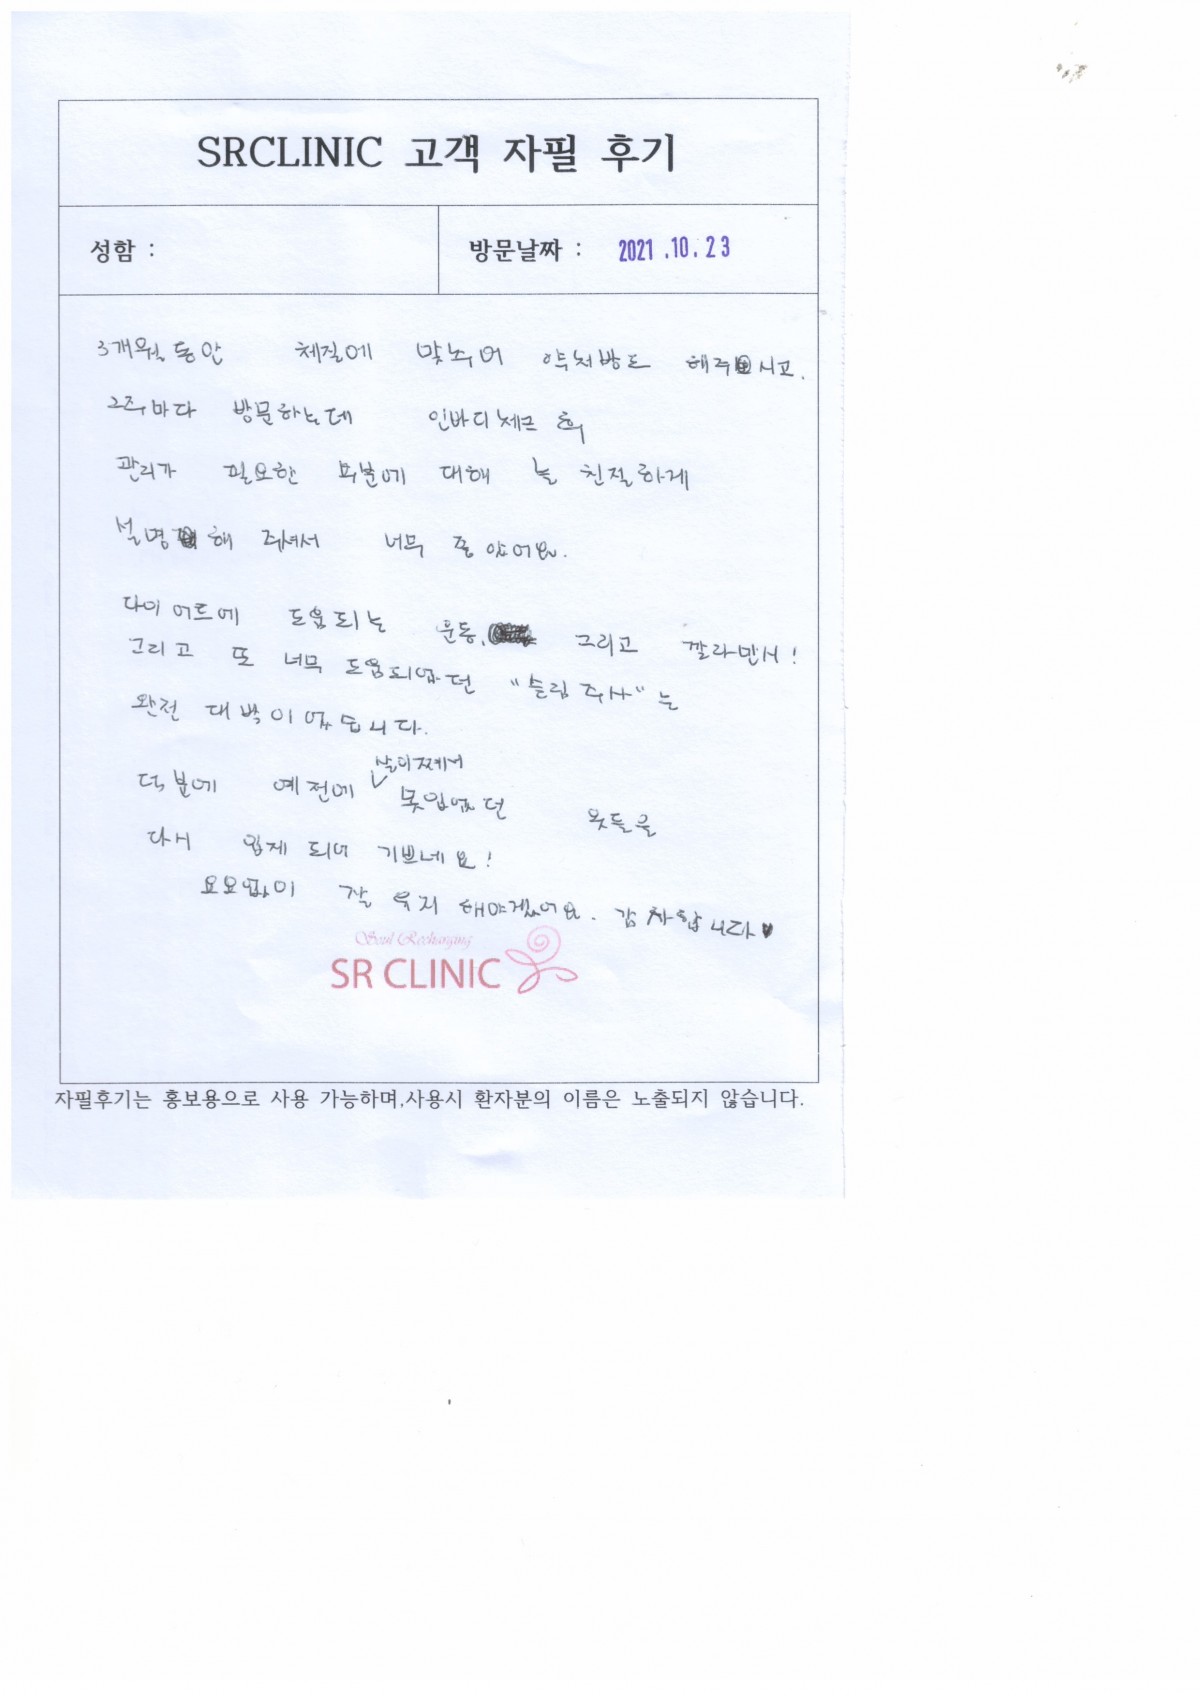 SRCLINIC 고객 자필 후기
성함 :
방문날짜 : 2021 .10. 23
3개월 동안 체질에 맞추어 약처방도 해주시고.
2주마다 방문하는데 인바디체크 후
관리가 필요한 부분에 대해 늘 친절하게
설명해 주셔서 너무 좋았어요.
다이어트에 도움되는 운동, 그리고 깔라만시!
그리고 또 너무 도움되었던 "슬림주사"는
완전 대박이었습니다.
덕분에 예전에 살이쪄서 못입었던 옷들을
다시 입게 되어 기쁘네요!
요요없이 잘 유지 해야겠어요. 감사합니다♥
Soul Recharging
SR CLINIC
자필후기는 홍보용으로 사용 가능하며,사용시 환자분의 이름은 노출되지 않습니다.